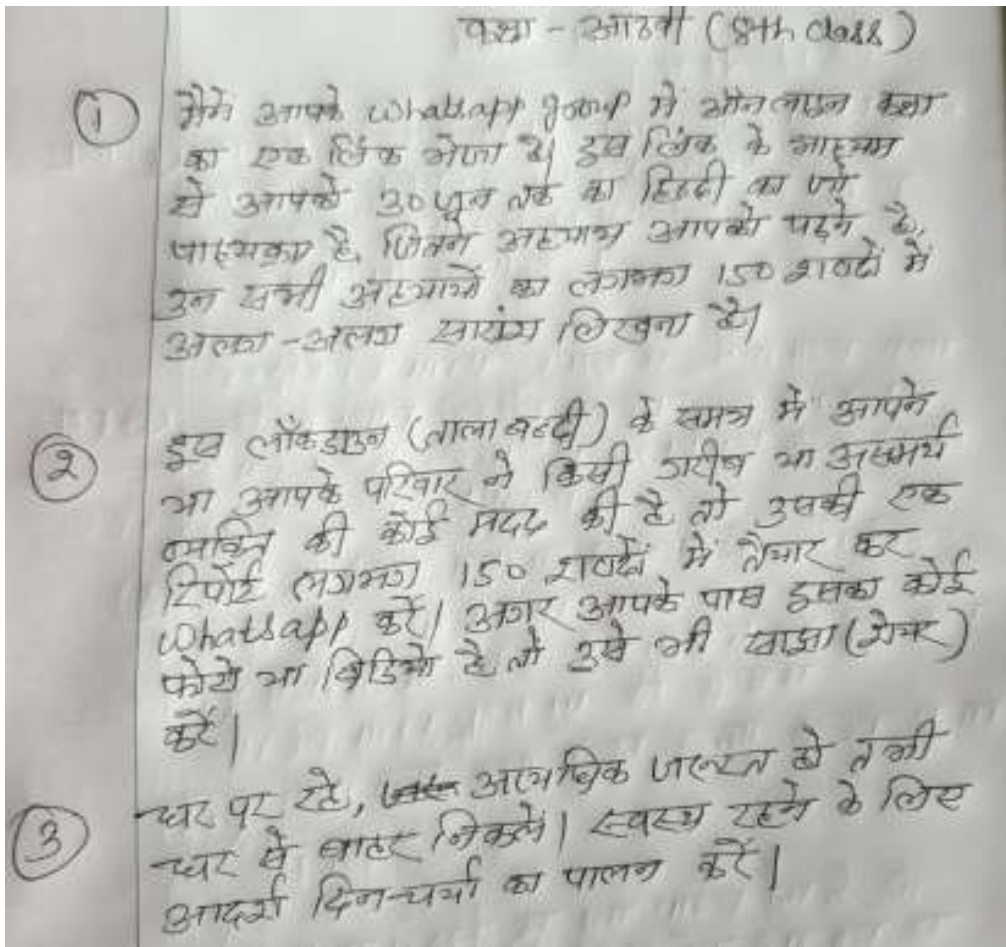 कक्षा - आठवी (8th class)
① मैंने आपके whatsapp group में ऑनलाइन कक्षा
का एक लिंक भेजा है। इस लिंक के माध्यम
से आपको 30 जून तक का हिन्दी का जो
पाठ्यक्रम है, जितने अध्याय आपको पढ़ने है,
उन सभी अध्यायों का लगभग 150 शब्दों में
अलग-अलग सारांश लिखना है।
② इस लॉकडाउन (ताला बन्दी) के समय में आपने
या आपके परिवार ने किसी गरीब या असमर्थ
व्यक्ति की कोई मदद की है तो उसकी एक
रिपोर्ट लगभग 150 शब्दों में तैयार कर
whatsapp करें। अगर आपके पास इसका कोई
फोटो या विडियो है तो उसे भी साझा (शेयर)
करें।
③ घर पर रहे, अत्यधिक जरूरत हो तभी
घर से बाहर निकलें। स्वस्थ रहने के लिए
आदर्श दिन-चर्या का पालन करें।